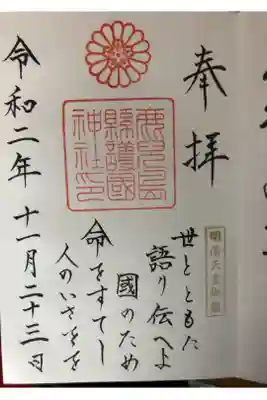 奉拝
明治天皇御製
世とともに
語り伝へよ
國のため
命をすてし
人のいさをを
鹿兒島
縣護國
神社印
令和二年十一月二十三日